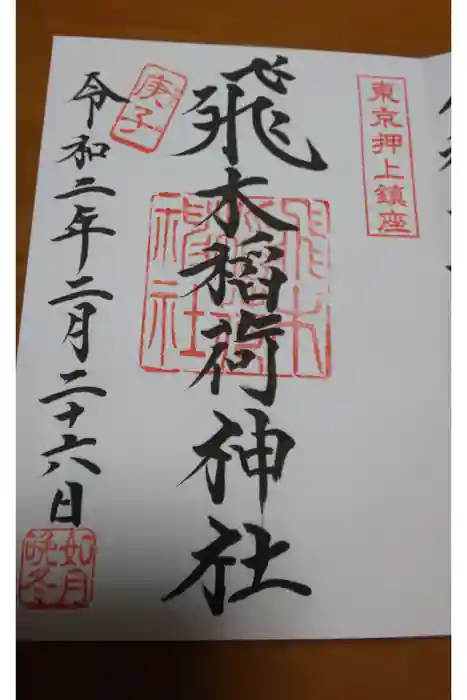 東京押上鎮座
飛木稲荷神社
飛木
稲荷
神社
庚子
令和二年二月二十六日
如月
晩冬